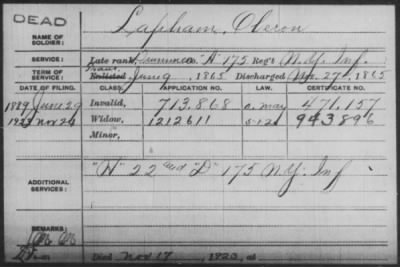 DEAD
NAME OF SOLDIER: Lapham, Oberon
SERVICE: Late rank, "H" 175 Reg't N.Y. Inf.
TERM OF SERVICE: Enlisted June 9, 1865 Discharged Nov. 27, 1865
DATE OF FILING. CLASS. APPLICATION NO. LAW. CERTIFICATE NO.
1889 June 29 Invalid, 713,868 a. may 471,157
1923 Nov 24 Widow, 1212611 5-1-20 943896
Minor,
ADDITIONAL SERVICES: "H" 22 and "D" 175 N.Y. Inf
REMARKS:
Died Nov 17, 1923, at